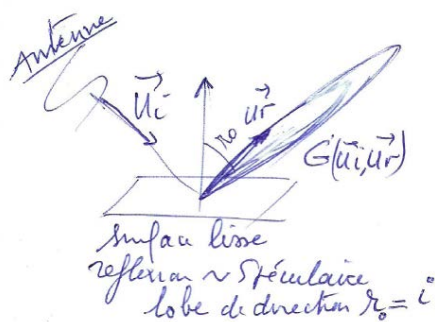 Antenne
ui
ur
r0
G(ui,ur)
surface lisse
reflexion ~ Spéculaire
lobe de direction r0 = i